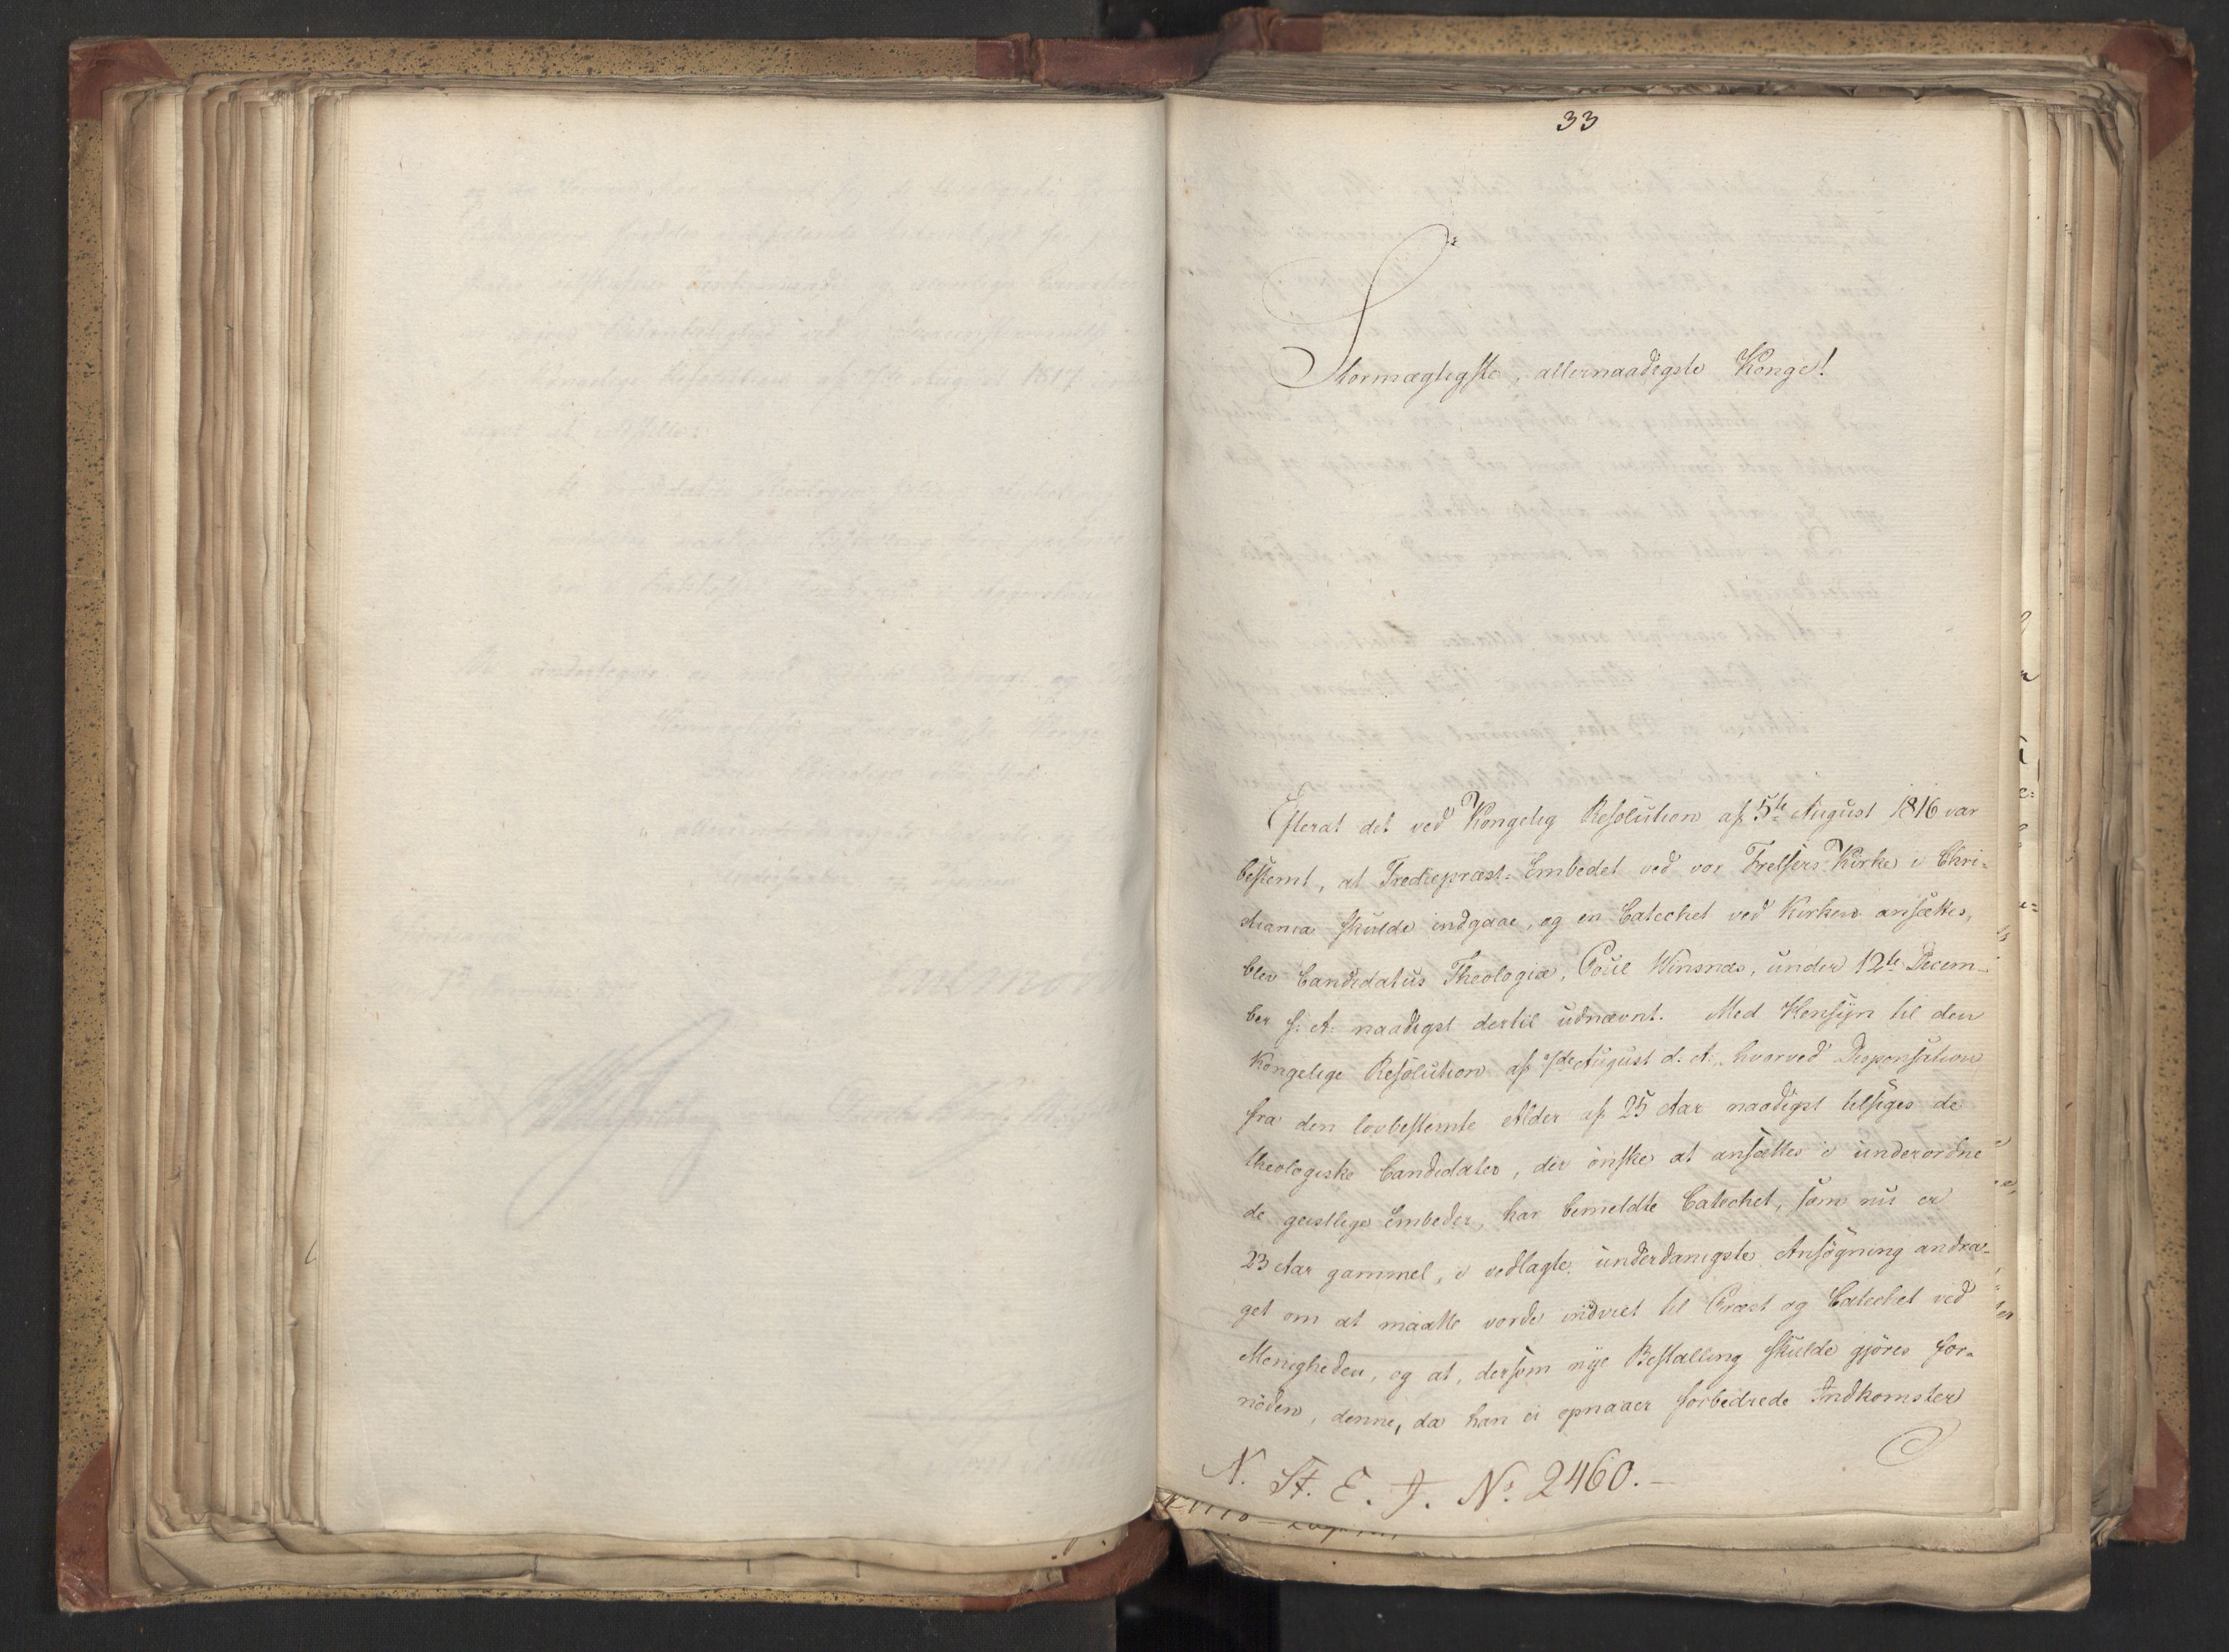 33
Stormægtigste, allernaadigste Konge!
Efterat det ved Kongelig Resolution af 5te August 1816 var
bestemt, at Trediepræst-Embedet ved vor Frelsers Kirke i Chri-
stiania skulde indgaae, og en Catechet ved Kirken ansættes,
blev Candidatus Theologiæ, Poul Winsnæs, under 12te Decem-
ber s: A: naadigst dertil udnævnt. Med Hensyn til den
Kongelige Resolution af August d: A:, hvorved Dispensation
fra den lovbestemte Alder af 25 Aar naadigst tilsiges de
theologiske Candidater, der önske at ansættes i underordne
de geistlige Embeder, har bemeldte Catechet, som nu er
23 Aar gammel, i vedlagte underdanigste Ansögning andra-
get om at maatte vorde indviet til Præst og Catechet ved
Menigheden, og at, dersom nye Bestalling skulde gjöres for-
nöden, denne, da han ei opnaaer forbedrede Indkomster
N. St. E. J. No. 2460.-